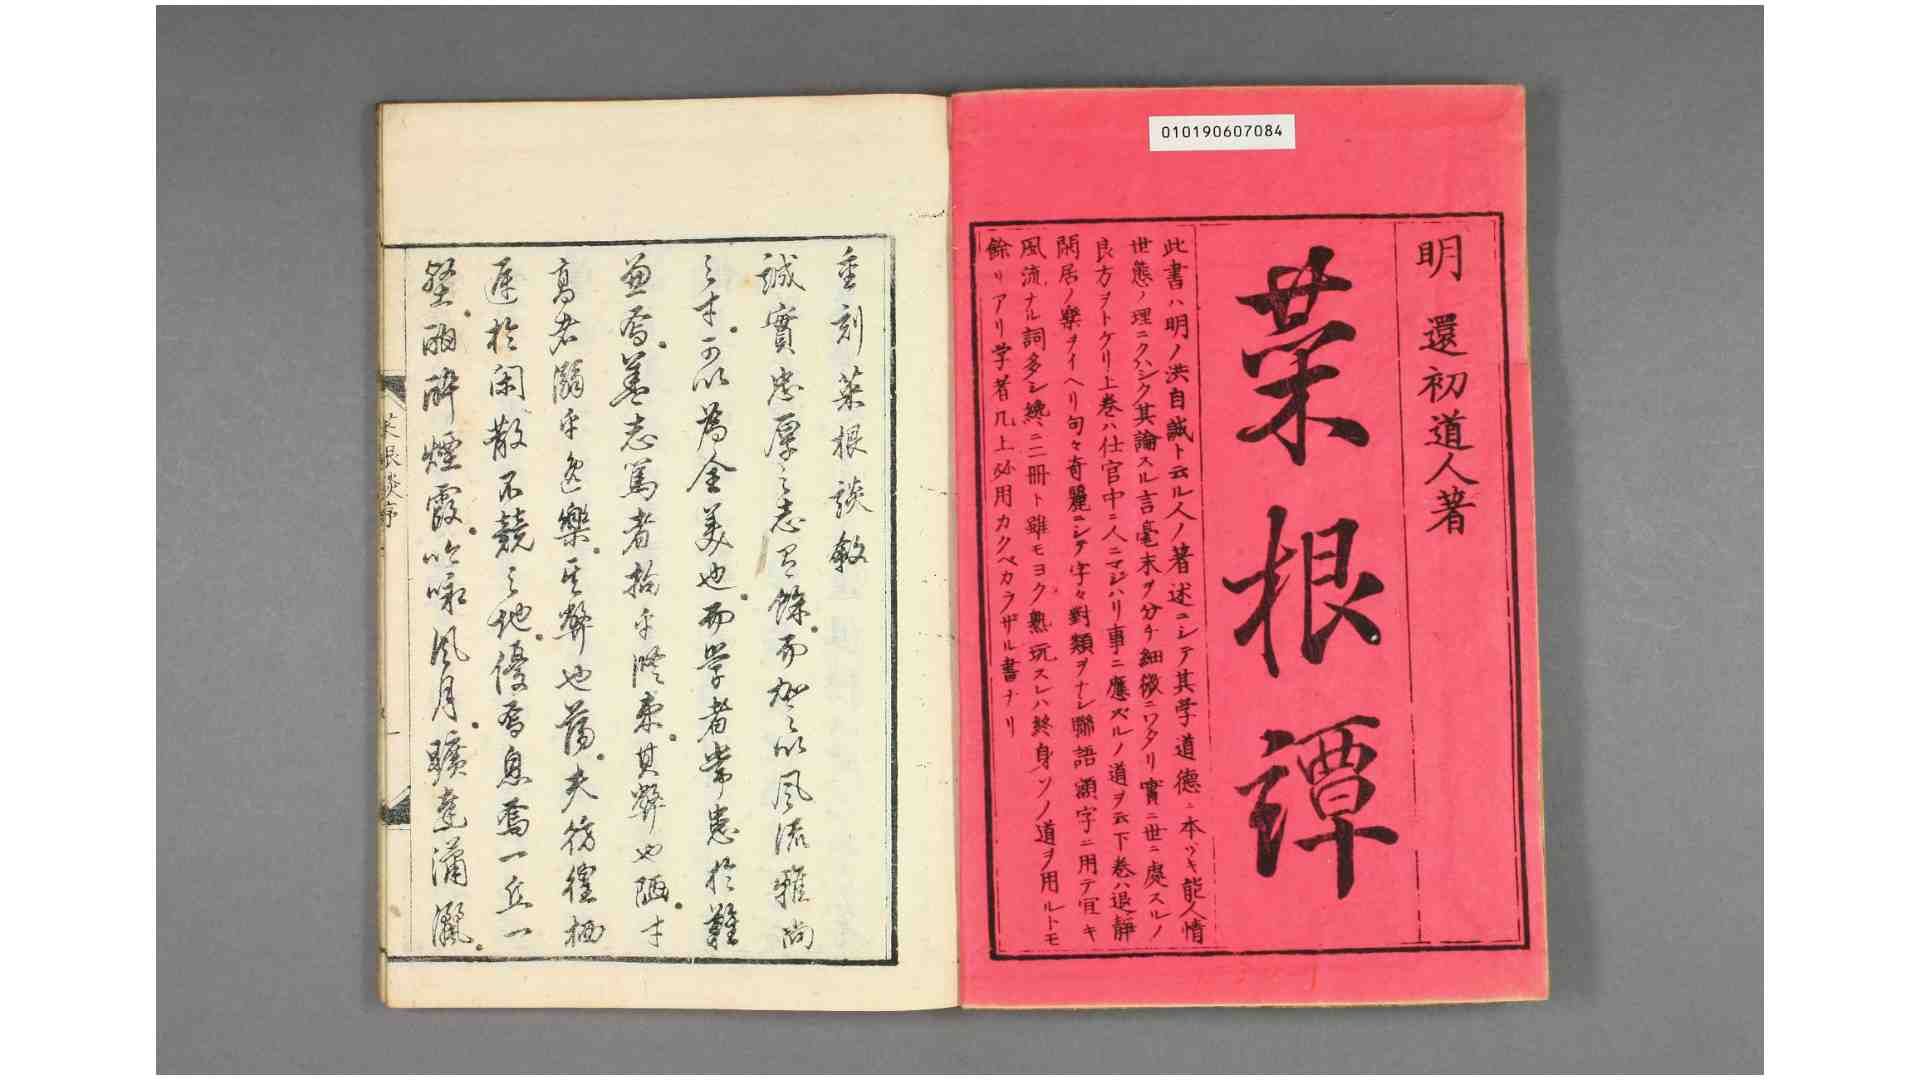 010190607084
明 還初道人著
菜根譚
此書ハ明ノ洪自誠ト云ル人ノ著述ニシテ其学道德ニ本ヅキ能人情
世態ノ理ニクハシク其論スル言毫末ヲ分チ細微ニワタリ實ニ世ニ處スルノ
良方ヲトケリ上巻ハ仕官中ニ人ニマジハリ事ニ應ズルノ道ヲ云下巻ハ退静
閑居ノ樂ヲイヘリ句々奇麗ニシテ字々對類ヲナシ聯語額字ニ用テ宜キ
風流ナル詞多シ纔ニ二冊ト雖モヨク熟玩スレハ終身ソノ道ヲ用ルトモ
餘リアリ学者几上必用カクベカラザル書ナリ
重刻菜根談敘
誠實忠厚之志有餘而加之以風流雅尚
之才可以為全美也而学者常患於難
兼焉蓋志篤者拘乎隘束其弊也陋才
高者溺乎逸樂其弊也蕩夫彷徨栖
遲於閑散不競之地優焉息焉一丘一
壑酒酔煙霞吟咏風月曠達瀟灑
菜根談序 一